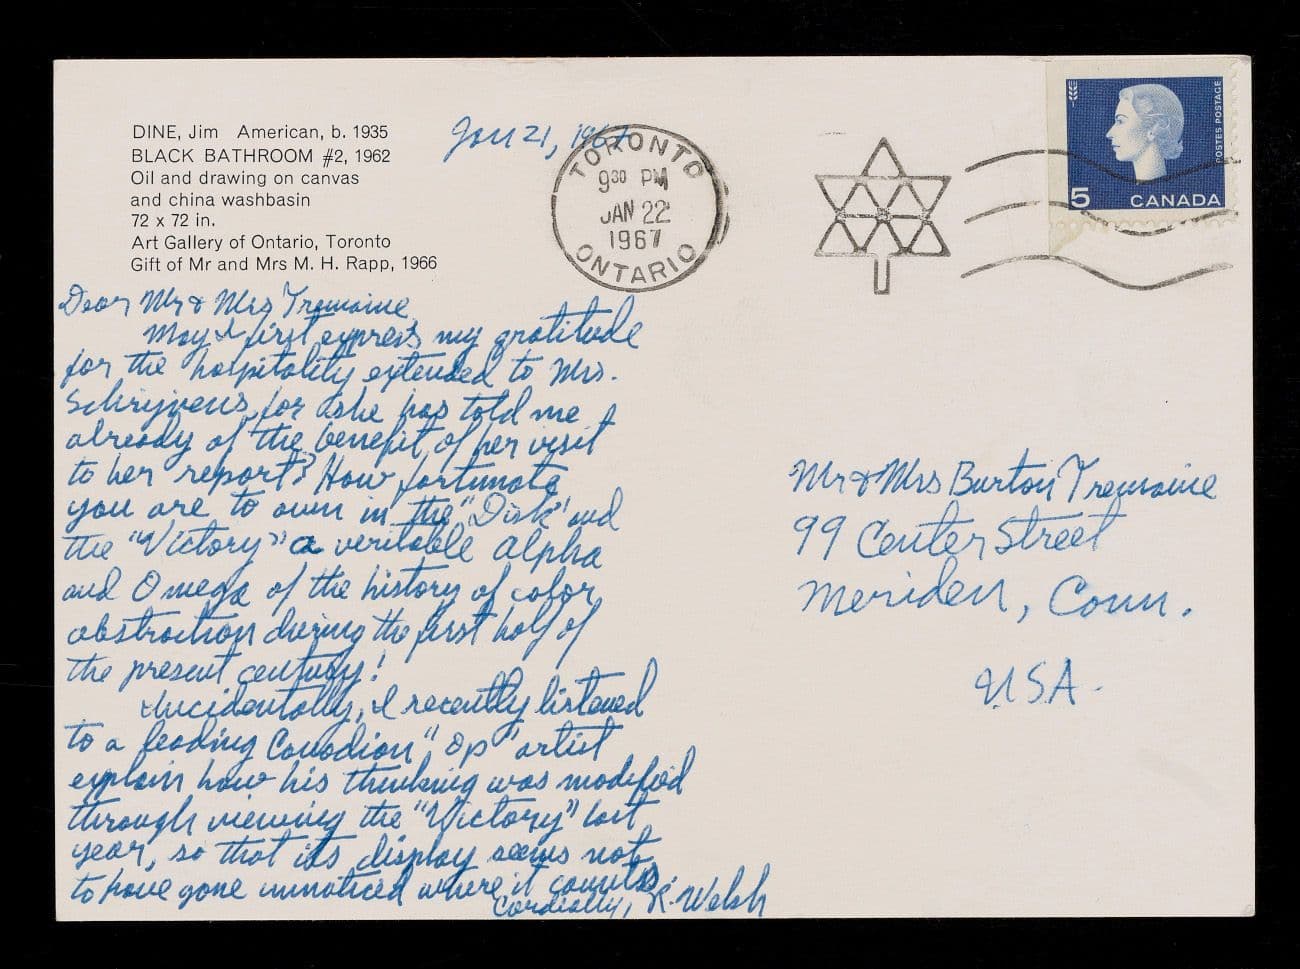 DINE, Jim American, b. 1935
BLACK BATHROOM #2, 1962
Oil and drawing on canvas
and china washbasin
72 x 72 in.
Art Gallery of Ontario, Toronto
Gift of Mr and Mrs M. H. Rapp, 1966
Jan 21, 1967
TORONTO
9 30 PM
JAN 22
1967
ONTARIO
5 CANADA
POSTES POSTAGE
Dear Mr & Mrs Tremaine,
May I first express my gratitude
for the hospitality extended to Mrs.
Schrijvens, for she has told me
already of the benefit of her visit
to her report? How fortunate
you are to own in the "Disk" and
the "Victory" a veritable alpha
and Omega of the history of color
abstraction during the first half of
the present century!
Incidentally, I recently listened
to a leading Canadian "Op" artist
explain how his thinking was modified
through viewing the "Victory" last
year, so that its display seems not
to have gone unnoticed where it counts.
Cordially, R. Welsh
Mr & Mrs Burton Tremaine
99 Center Street
Meriden, Conn.
U.S.A.